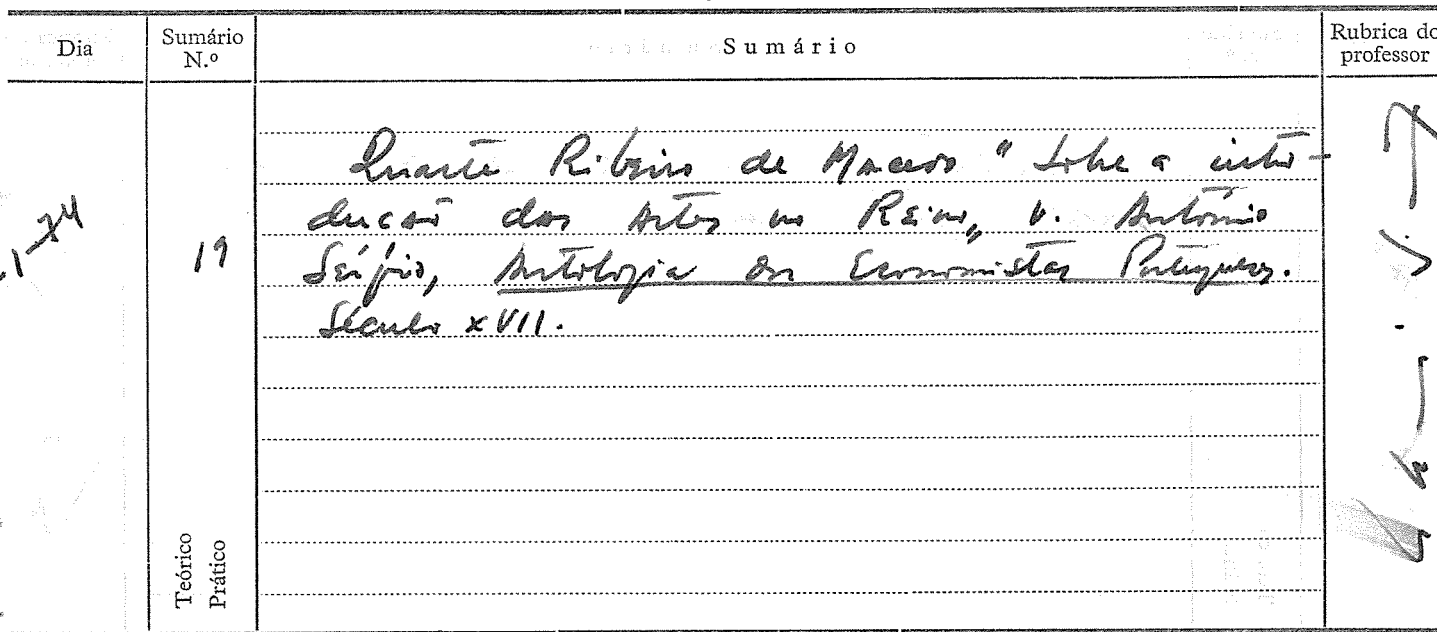 Dia
Sumário N.º
Sumário
Rubrica do professor
19
Duarte Ribeiro de Macedo "Sobre a intro-
dução das Artes no Reino„ v. António
Sérgio, Antologia dos Economistas Portugueses.
Século XVII.
Teórico
Prático